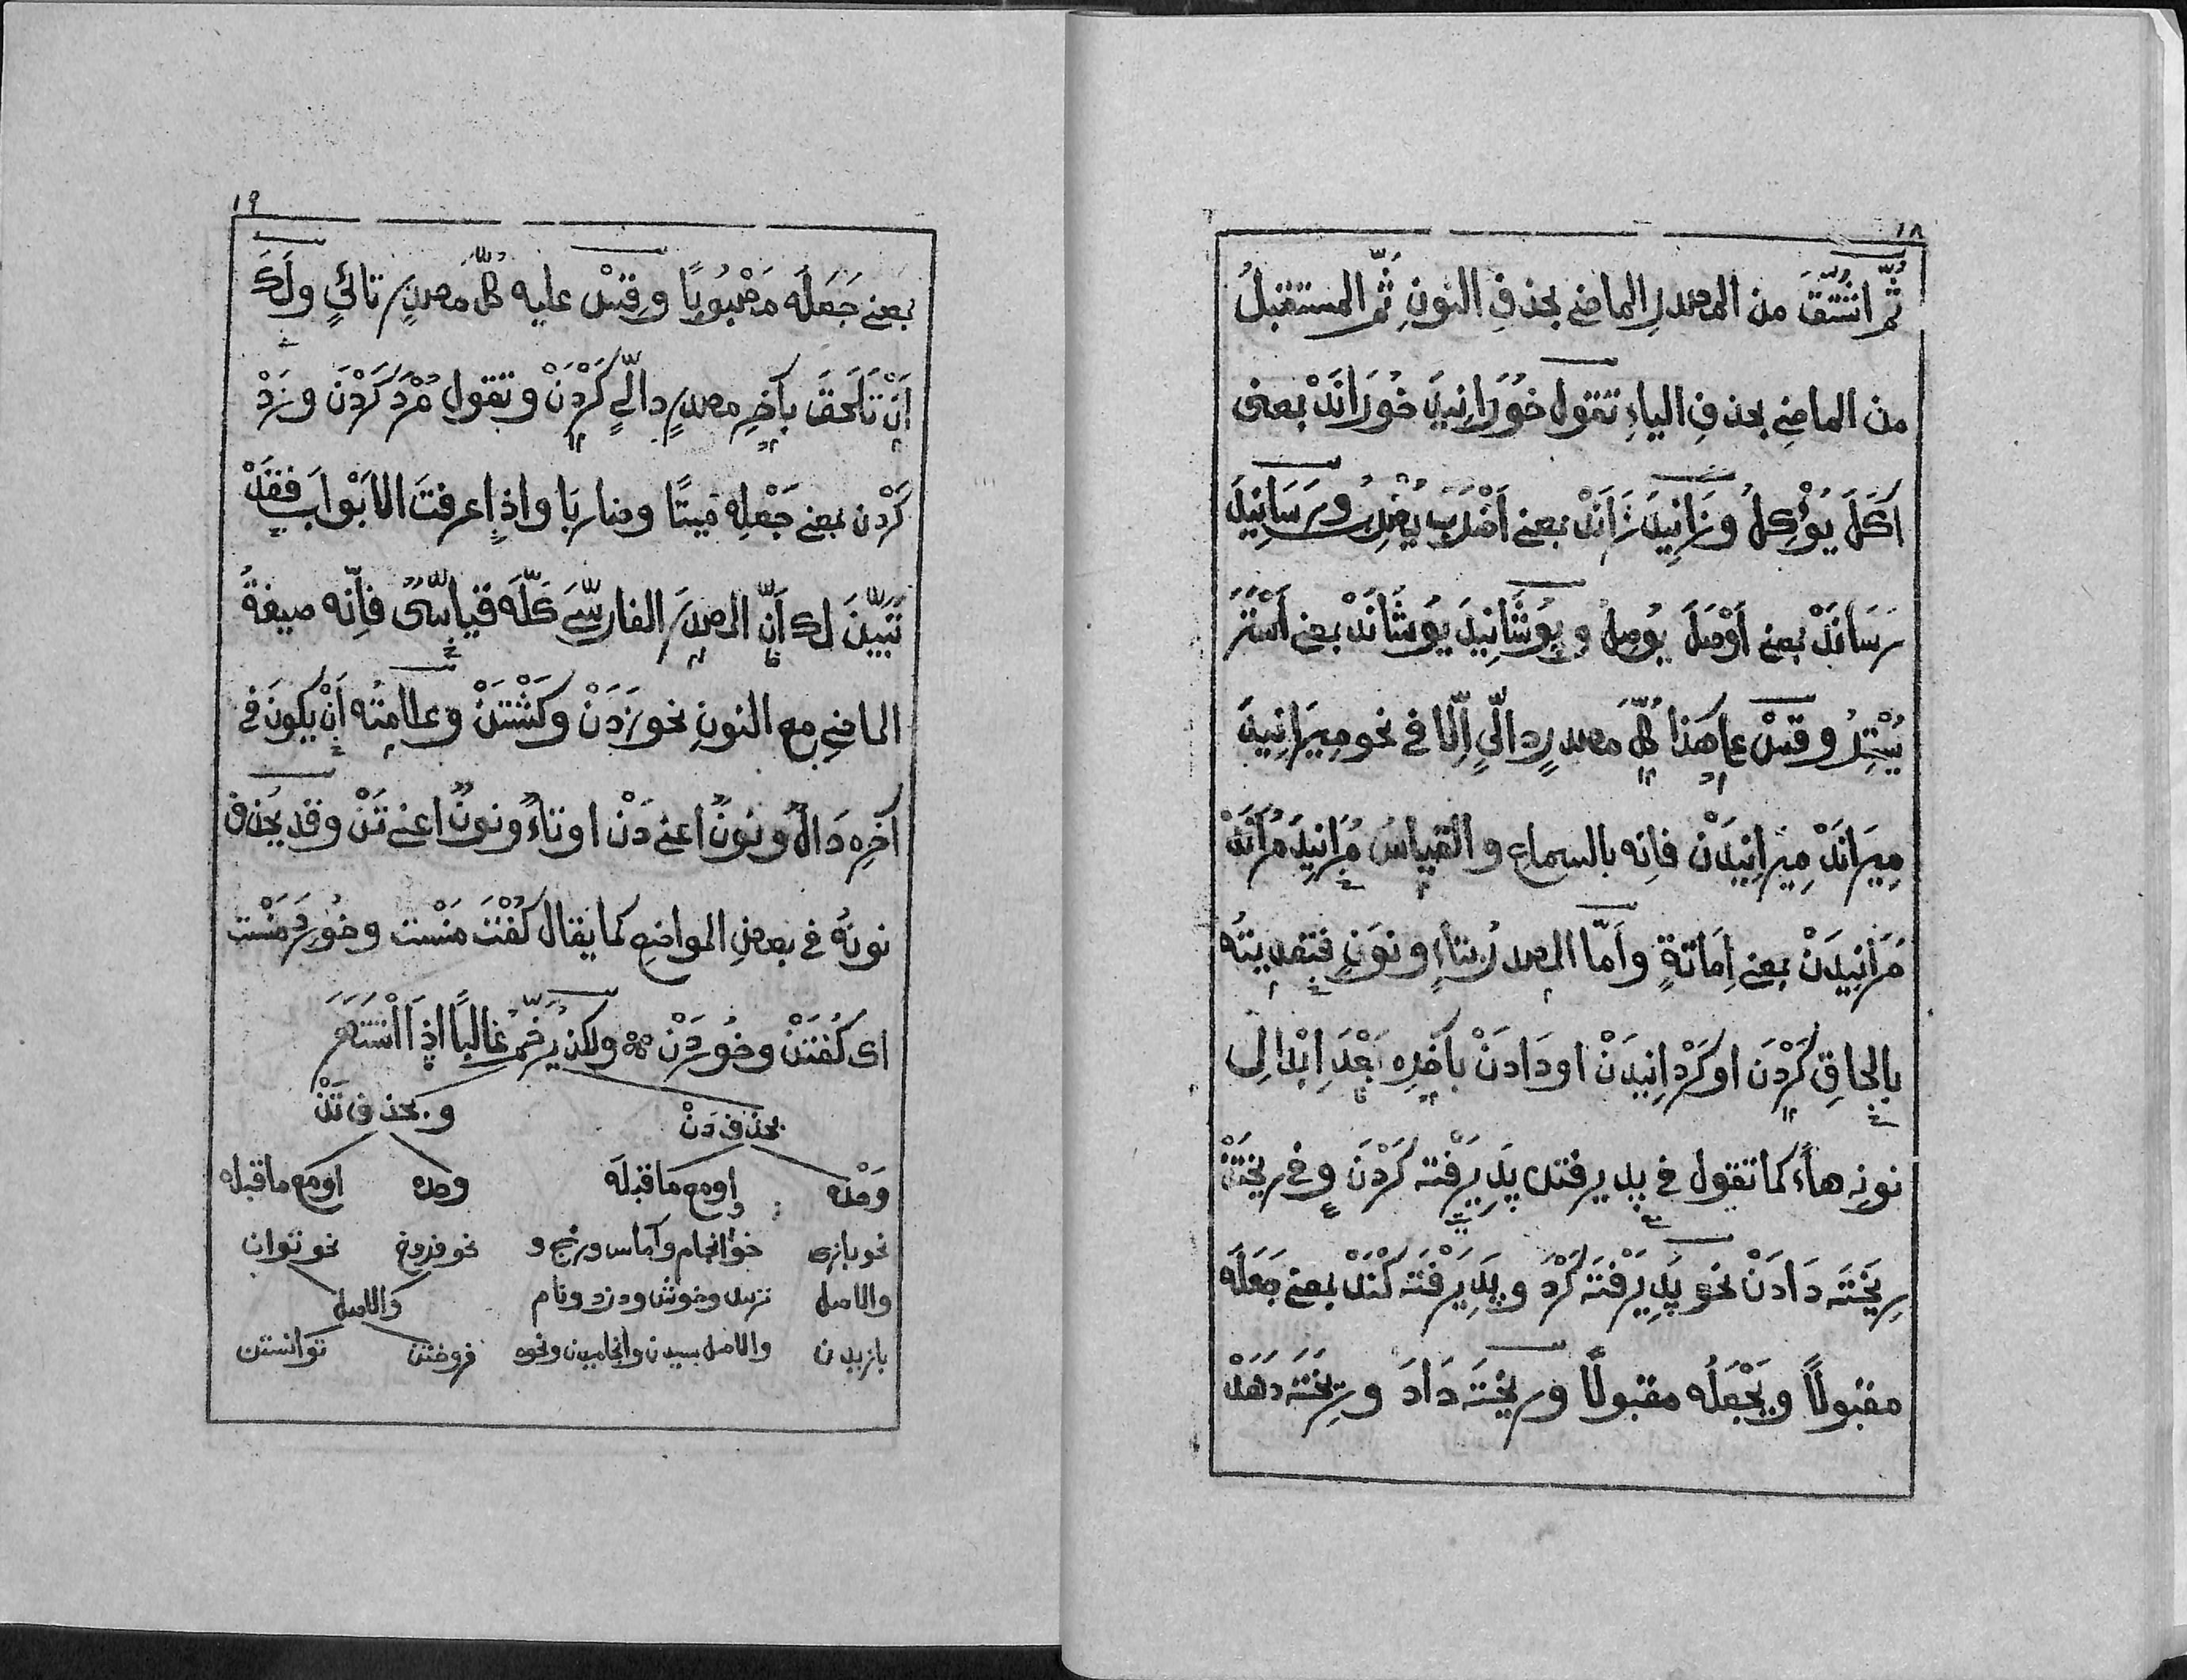 ١٨
ثُمَّ اشْتُقَّ من المصدرِ الماضی بحذفِ النونِ ثُمَّ المستقبلُ
من الماضِی بحذفِ الیاءِ تقول خُورَانِیدَ خُورَانَدْ بمعنی
اَکَلَ یُؤْکِلُ وَزَانِیدَ زَانَدْ بمعنی اَضْرَبَ یُضْرِبُ وَرَسَانِیدَ
رَسَانَدْ بمعنی اَوْصَلَ یُوصِلُ وپُوشَانِیدَ پُوشَانَدْ بمعنی اَسْتَرَ
یُسْتِرُ وقِسْ علی هَذا کُلَّ مصدرٍ دالّیٍ اِلّا فی نحو مِیرَانِیدَ
مِیرَانَدْ مِیرَانِیدَنْ فاِنه بالسماعِ والقیاسُ مُرَانِیدَ مُرَانَدْ
مُرَانِیدَنْ بمعنی اِمَاتَةٍ وَاَمّا المصدرُ بتاءٍ ونَونٍ فتعدیتُه
بالحاقِ کَرْدَن او کَرْدَانِیدَنْ او دَادَنْ بآخِرِه بَعْدَ اِبْدالِ
نونِه هاءً کما تقول فی پدیرفتن پَدِیرَفْتَه کَرْدَن وفی ریختن
رِیخْتَه دَادَنْ نحو پَدِیرَفْتَه کَرْدَ وپَدِیرَفْتَه کُنَدْ بمعنی جَعَلَه
مقبولًا ویَجْعَلُه مقبولًا وریخْتَه دَادَ ورِیخْتَه دَهَدْ
١٩
بمعنی جَعَلَه مَصْبُوبًا وقِسْ علیه کُلَّ مصدرٍ تائیٍ ولَکَ
اَنْ تَلْحَقَ بآخِرِ مصدرٍ دالّیٍ کَرْدَنْ وتقول مُرْدَ کَرْدَنْ وزَدْ
کَرْدن بمعنی جَعْلِه مَیتًا وضاربًا واذا عرفتَ الابْوابَ فقدْ
تَبَیَّنَ لک اَنّ المصدرَ الفارسّیَ کُلَّه قیاسّیٌ فاِنّه صیغةُ
الماضِی مع النونِ نحو زَدَنْ وکُشْتَنْ وعلامتُه اَنْ یکونَ فی
آخرِه دَالٌ ونونٌ اعنی دَنْ او تاءٌ ونونٌ اعنی تَنْ وقد یُحذف
نونُه فی بعضِ المواضِعِ کما یقال کُفْتَ مَنْست وخُورَدَ مَنْست
ای کُفْتَنْ وخُورَدَنْ ولکن یُرَخَّمُ غالبًا اِذا اسْتُعمِلَ
بحذف دَنْ وبحذف تَنْ
وَحْدَه اومع ماقبلَه وحده اومع ماقبله
نحو بازی نحو انجام وآماس ورنج و نحو فروخ نحو توان
والاصل ترس وخوش ودزد ونام والاصل
بازیدن والاصل ترسیدن وانجامیدن ونحوه فروختن توانستن